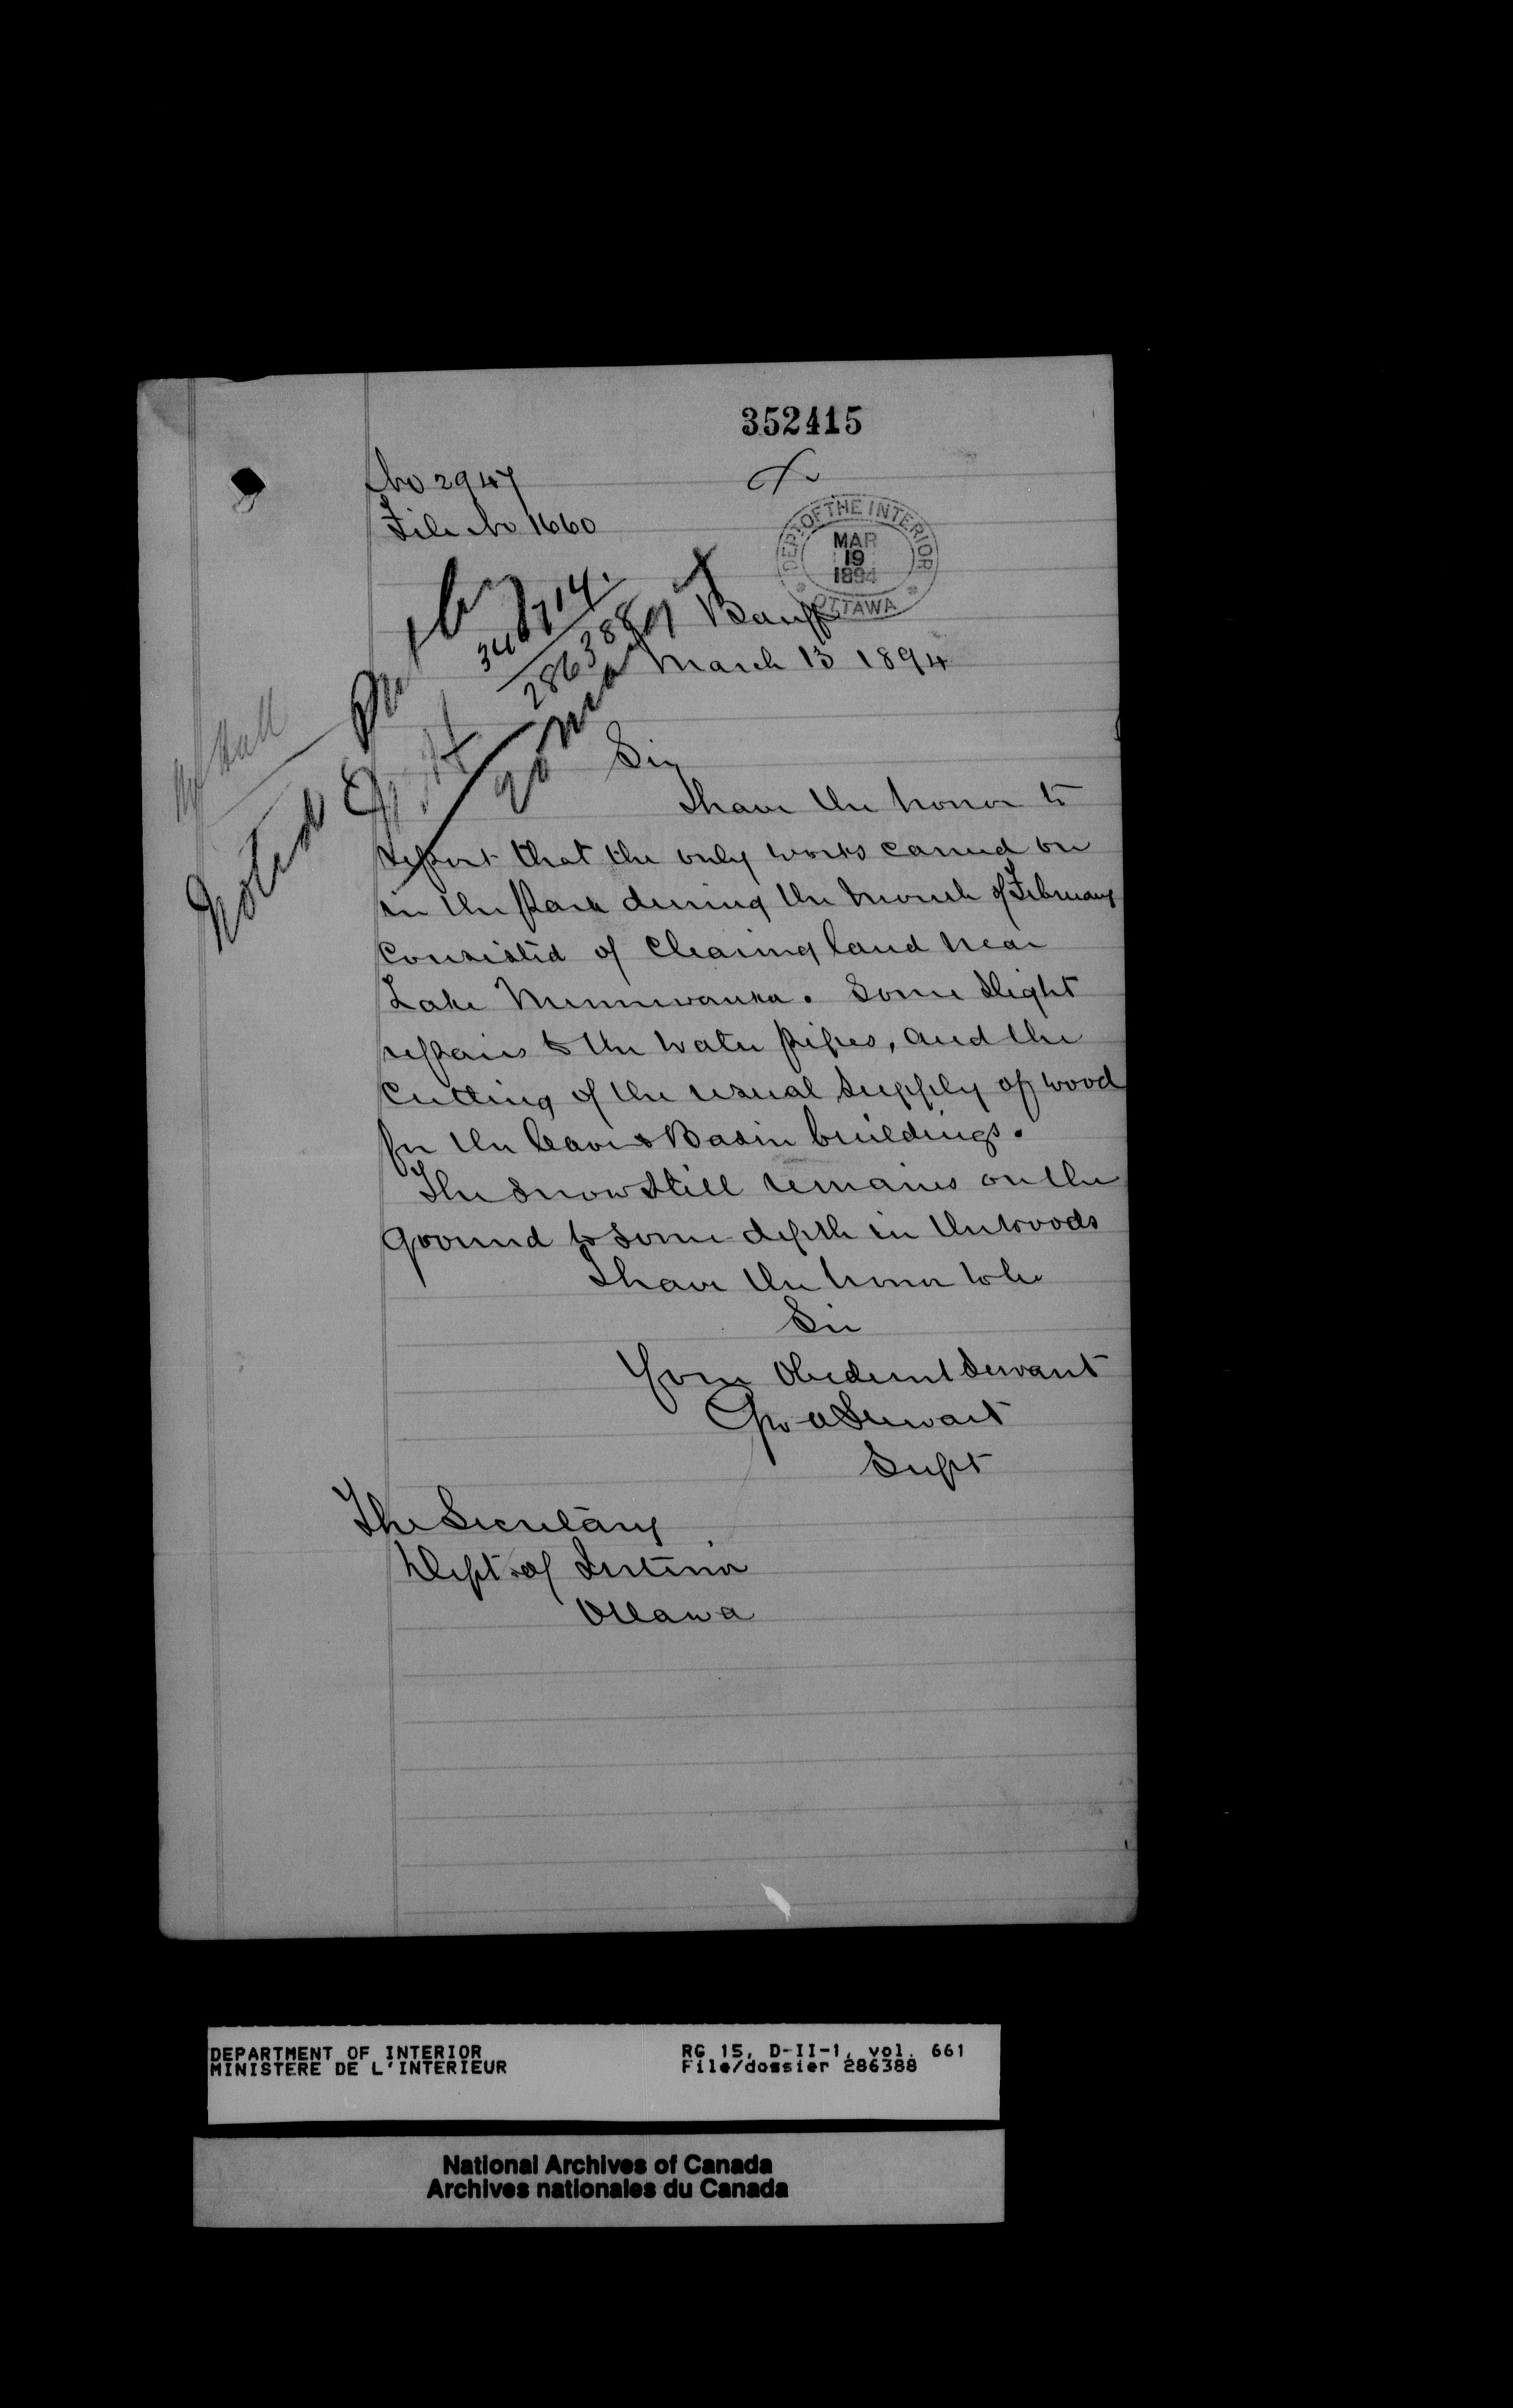 352415
No 2947
File No 1660
DEPT. OF THE INTERIOR
MAR
19
1894
OTTAWA
346714.
286388
Banff
March 13 1894
Mr Hall
Noted
Sir,
I have the honor to
report that the only works carried on
in the Park during the month of February
consisted of clearing land near
Lake Minnewanka. Some slight
repairs to the water pipes, and the
cutting of the usual supply of wood
for the Cave & Basin buildings.
The snow still remains on the
ground to some depth in the woods
I have the honor to be
Sir
Your Obedient Servant
Geo A Stewart
Supt
The Secretary
Dept of Interior
Ottawa
DEPARTMENT OF INTERIOR RG 15, D-II-1, vol. 661
MINISTERE DE L'INTERIEUR File/dossier 286388
National Archives of Canada
Archives nationales du Canada